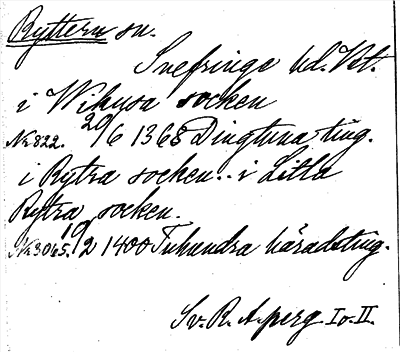 Ryttern sn.
Snefringe hd. Vst.
i Wikusa socken
No 822. 20/6 1368 Dingtuna ting.
i Rytra socken.. i Litla
Rytra socken.
No 3065. 19/2 1400 Tuhundra häradsting.
Sv. R. A. perg. I o. II.